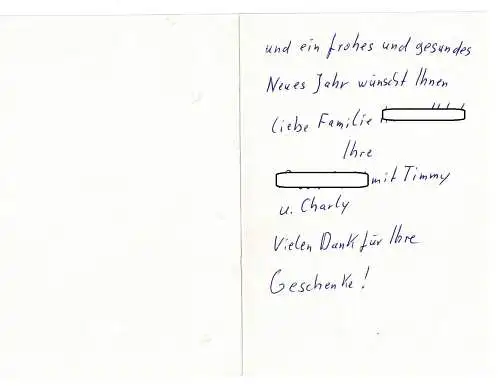 und ein frohes und gesundes
Neues Jahr wünscht Ihnen
liebe Familie
Ihre
mit Timmy
u. Charly
Vielen Dank für Ihre
Geschenke!